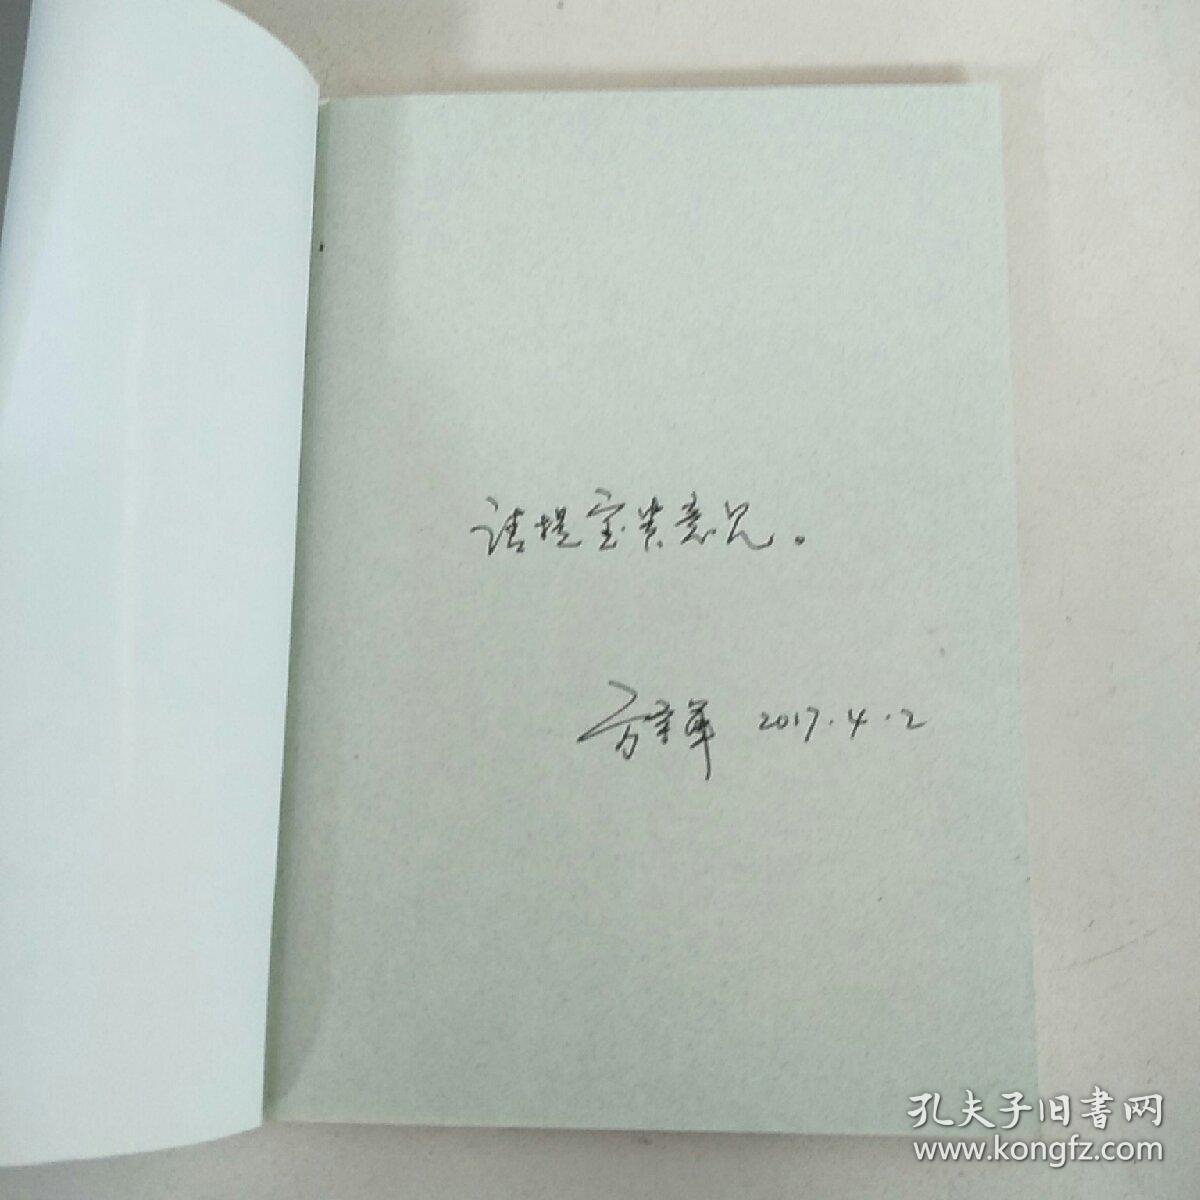 请提宝贵意见。
2017.4.2
孔夫子旧書网
www.kongfz.com